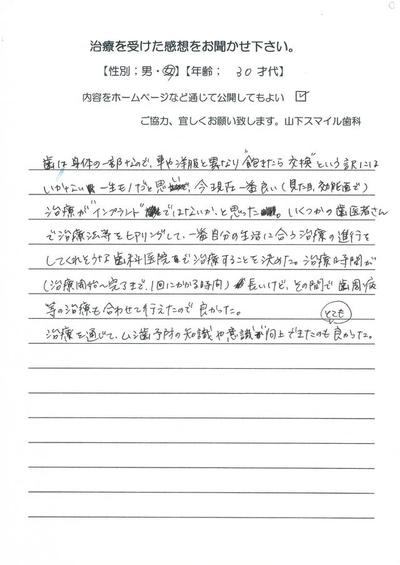 治療を受けた感想をお聞かせ下さい。
【性別；男・女】【年齢； 30 才代】
内容をホームページなど通じて公開してもよい ☑
ご協力、宜しくお願い致します。山下スマイル歯科
歯は身体の一部なので、車や洋服と異なり"飽きたら交換"という訳には
いかない 一生モノだと思い、今現在一番良い（見た目、効能面で）
治療が"インプラント"ではないか、と思った。いくつかの歯医者さん
で治療法等をヒアリングして、一番自分の生活に合う治療の進行を
してくれそうな歯科医院で治療することを決めた。治療時間が
（治療開始～完了まで、1回にかかる時間）長いけど、その間で歯周病
等の治療も合わせて行えたので良かった。
治療を通じて、ムシ歯予防の知識や意識が向上できたのもとても良かった。